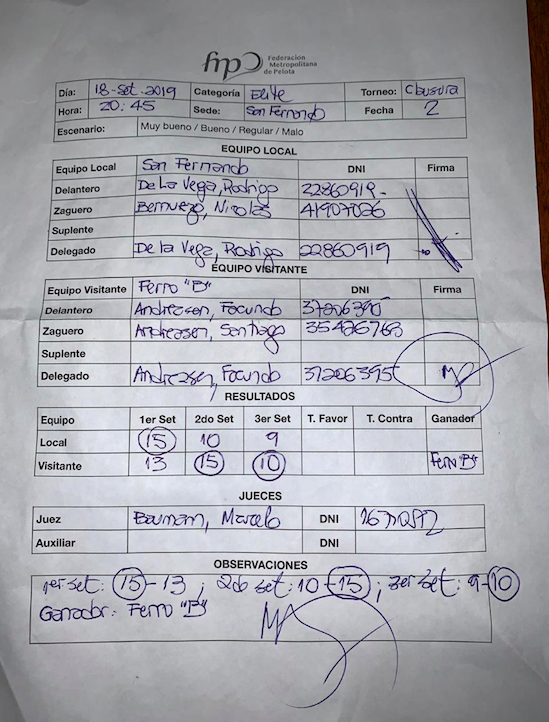 fmp Federacion
Metropolitana
de Pelota
Día: 18-Set-2019 Categoría Elite Torneo: Clausura
Hora: 20:45 Sede: San Fernando Fecha 2
Escenario: Muy bueno / Bueno / Regular / Malo
EQUIPO LOCAL
Equipo Local San Fernando DNI Firma
Delantero De La Vega, Rodrigo 22860919-
Zaguero Bermudez, Nicolás 41907026
Suplente
Delegado De la Vega, Rodrigo 22860919
EQUIPO VISITANTE
Equipo Visitante Ferro "B" DNI Firma
Delantero Andreasen, Facundo 37206395
Zaguero Andreasen, Santiago 35426763
Suplente
Delegado Andreasen, Facundo 37206395
RESULTADOS
Equipo 1er Set 2do Set 3er Set T. Favor T. Contra Ganador
Local 15 10 9
Visitante 13 15 10 Ferro "B"
JUECES
Juez Bauman, Marcelo DNI
Auxiliar DNI
OBSERVACIONES
1er set: 15-13 ; 2do set: 10-15 ; 3er set: 9-10
Ganador: Ferro "B"